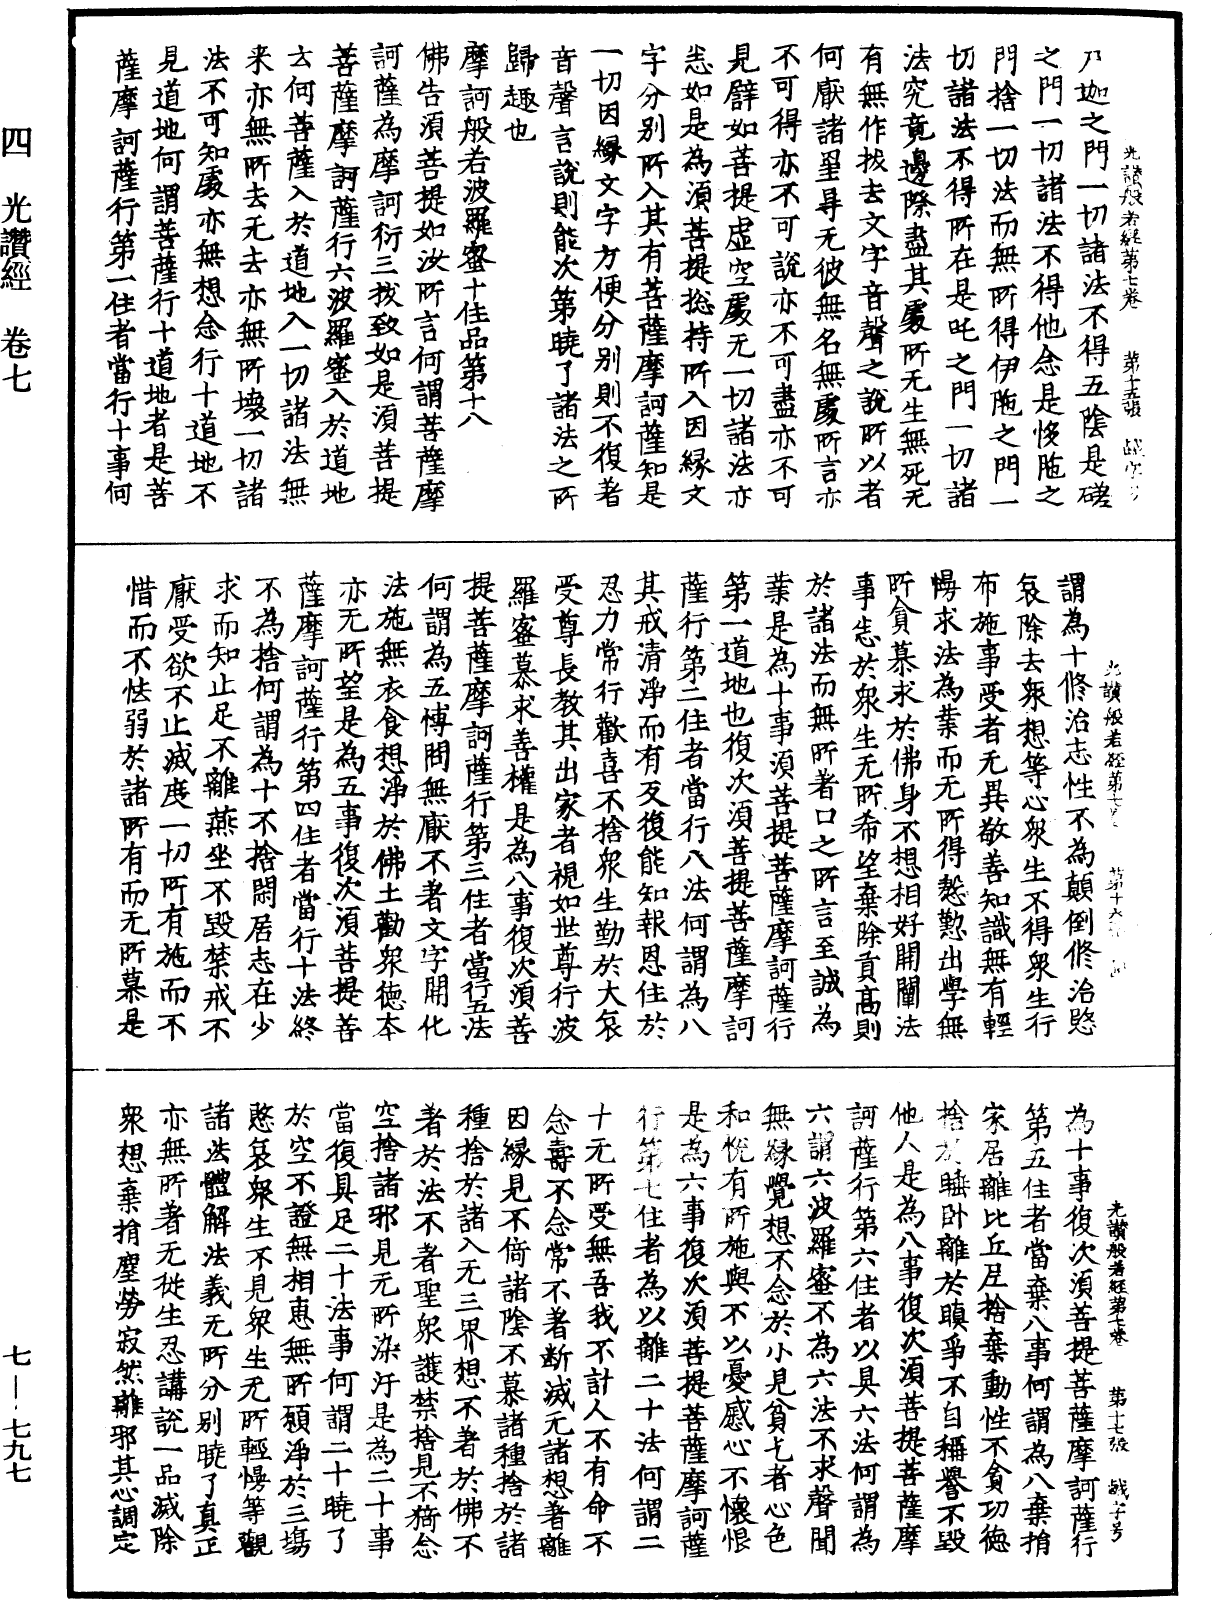 四 光讚經 卷七
七—七九七
光讚般若經第七卷 第十五張 戰字号
乃迦之門一切諸法不得五陰是磋
之門一切諸法不得他念是恀陁之
門捨一切法而無所得伊陁之門一
切諸法不得所在是吒之門一切諸
法究竟邊際盡其處所无生無死无
有無作抆去文字音聲之說所以者
何厭諸罣㝵无彼無名無處所言亦
不可得亦不可說亦不可盡亦不可
見譬如菩提虛空處无一切諸法亦
悉如是為湏菩提捴持所入因緣文
字分別所入其有菩薩摩訶薩知是
一切因緣文字方便分別則不復著
音聲言說則能次第曉了諸法之所
歸趣也
摩訶般若波羅蜜十住品第十八
佛告湏菩提如汝所言何謂菩薩摩
訶薩為摩訶衍三抜致如是湏菩提
菩薩摩訶薩行六波羅蜜入於道地
云何菩薩入於道地入一切諸法無
来亦無所去无去亦無所壞一切諸
法不可知處亦無想念行十道地不
見道地何謂菩薩行十道地者是菩
薩摩訶薩行第一住者當行十事何
光讚般若經第七卷 第十六張
謂為十修治志性不為顛倒修治愍
哀除去衆想等心衆生不得衆生行
布施事受者无異敬善知識無有輕
慢求法為業而无所得慇懃出學無
所貪慕求於佛身不想相好開闡法
事志於衆生无所希望棄除貢高則
於諸法而無所著口之所言至誠為
業是為十事湏菩提菩薩摩訶薩行
第一道地也復次湏菩提菩薩摩訶
薩行第二住者當行八法何謂為八
其戒清淨而有反復能知報恩住於
忍力常行歡喜不捨衆生勤於大哀
受尊長教其出家者視如世尊行波
羅蜜慕求善權是為八事復次湏菩
提菩薩摩訶薩行第三住者當行五法
何謂為五博問無厭不著文字開化
法施無衣食想淨於佛土勸衆德本
亦无所望是為五事復次湏菩提菩
薩摩訶薩行第四住者當行十法終
不為捨何謂為十不捨閑居志在少
求而知止足不離燕坐不毀禁戒不
厭受欲不止滅度一切所有施而不
惜而不怯弱於諸所有而无所慕是
光讚般若經第七卷 第十七張 戰字号
為十事復次湏菩提菩薩摩訶薩行
第五住者當棄八事何謂為八棄捐
家居離比丘尼捨棄動性不貪功德
捨於睡卧離於瞋爭不自稱譽不毀
他人是為八事復次湏菩提菩薩摩
訶薩行第六住者以具六法何謂為
六謂六波羅蜜不為六法不求聲聞
無緣覺想不念於小見貧乞者心色
和悅有所施與不以憂慼心不懷恨
是為六事復次湏菩提菩薩摩訶薩
行第七住者為以離二十法何謂二
十无所受無吾我不計人不有命不
念壽不念常不著斷滅无諸想著離
因緣見不倚諸陰不慕諸種捨於諸
種捨於諸入无三界想不著於佛不
著於法不著聖衆護禁捨見不猗念
空捨諸邪見无所染汙是為二十事
當復具足二十法事何謂二十曉了
於空不證無相惠無所願淨於三塲
愍哀衆生不見衆生无所輕慢等觀
諸法體解法義无所分別曉了真正
亦無所著无從生忍講說一品滅除
衆想棄捐塵勞寂然離邪其心調定